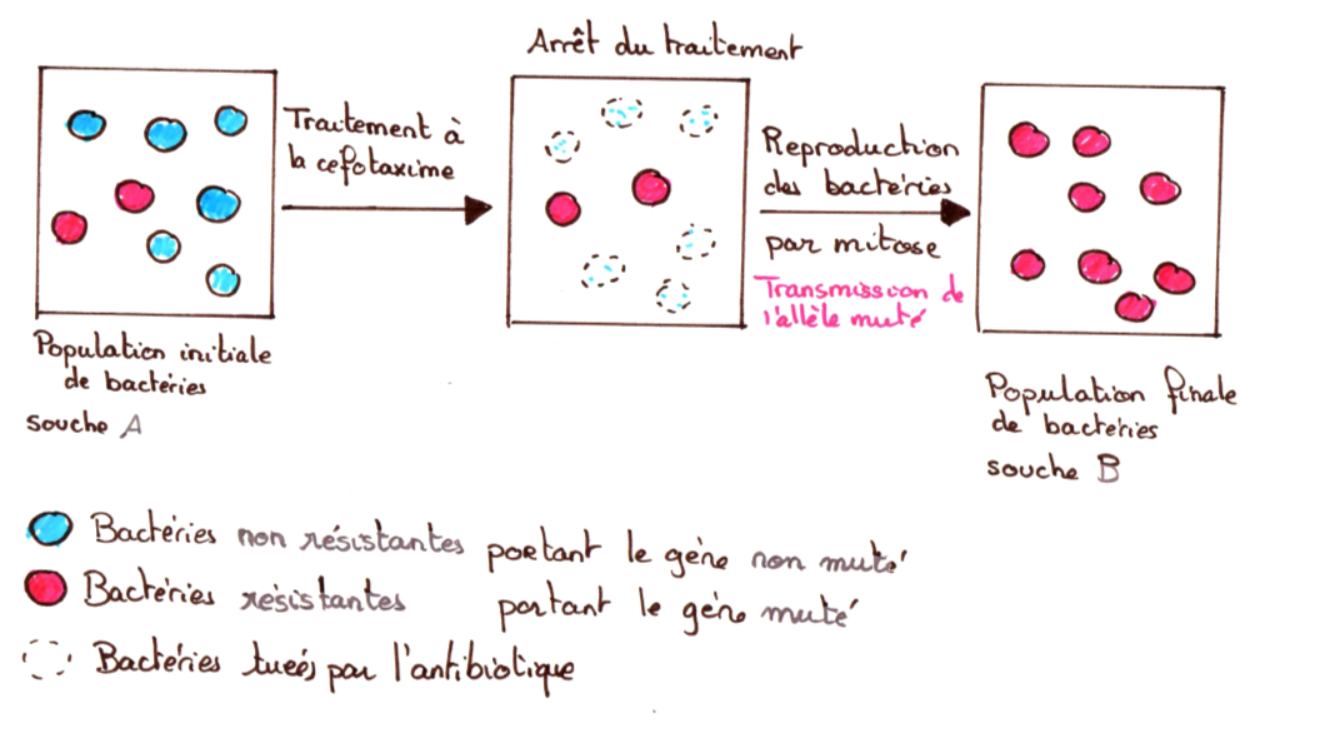 Arrêt du traitement
Traitement à
la cefotaxime
Reproduction
des bactéries
par mitose
Transmission de
l'allèle muté
Population initiale
de bactéries
souche A
Population finale
de bactéries
souche B
Bactéries non résistantes portant le gène non muté
Bactéries résistantes portant le gène muté
Bactéries tueés par l'antibiotique